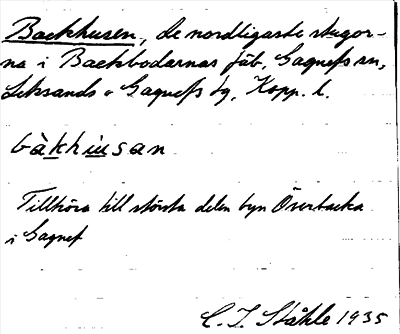 Backhusen, de nordligaste stugor-
na i Backbodarnas fäb, Gagnefs sn,
Leksands o Gagnefs tg, Kopp. l.
bàkhusan
Tillhöra till största delen byn Överbacka
i Gagnef
C. I. Ståhle 1935